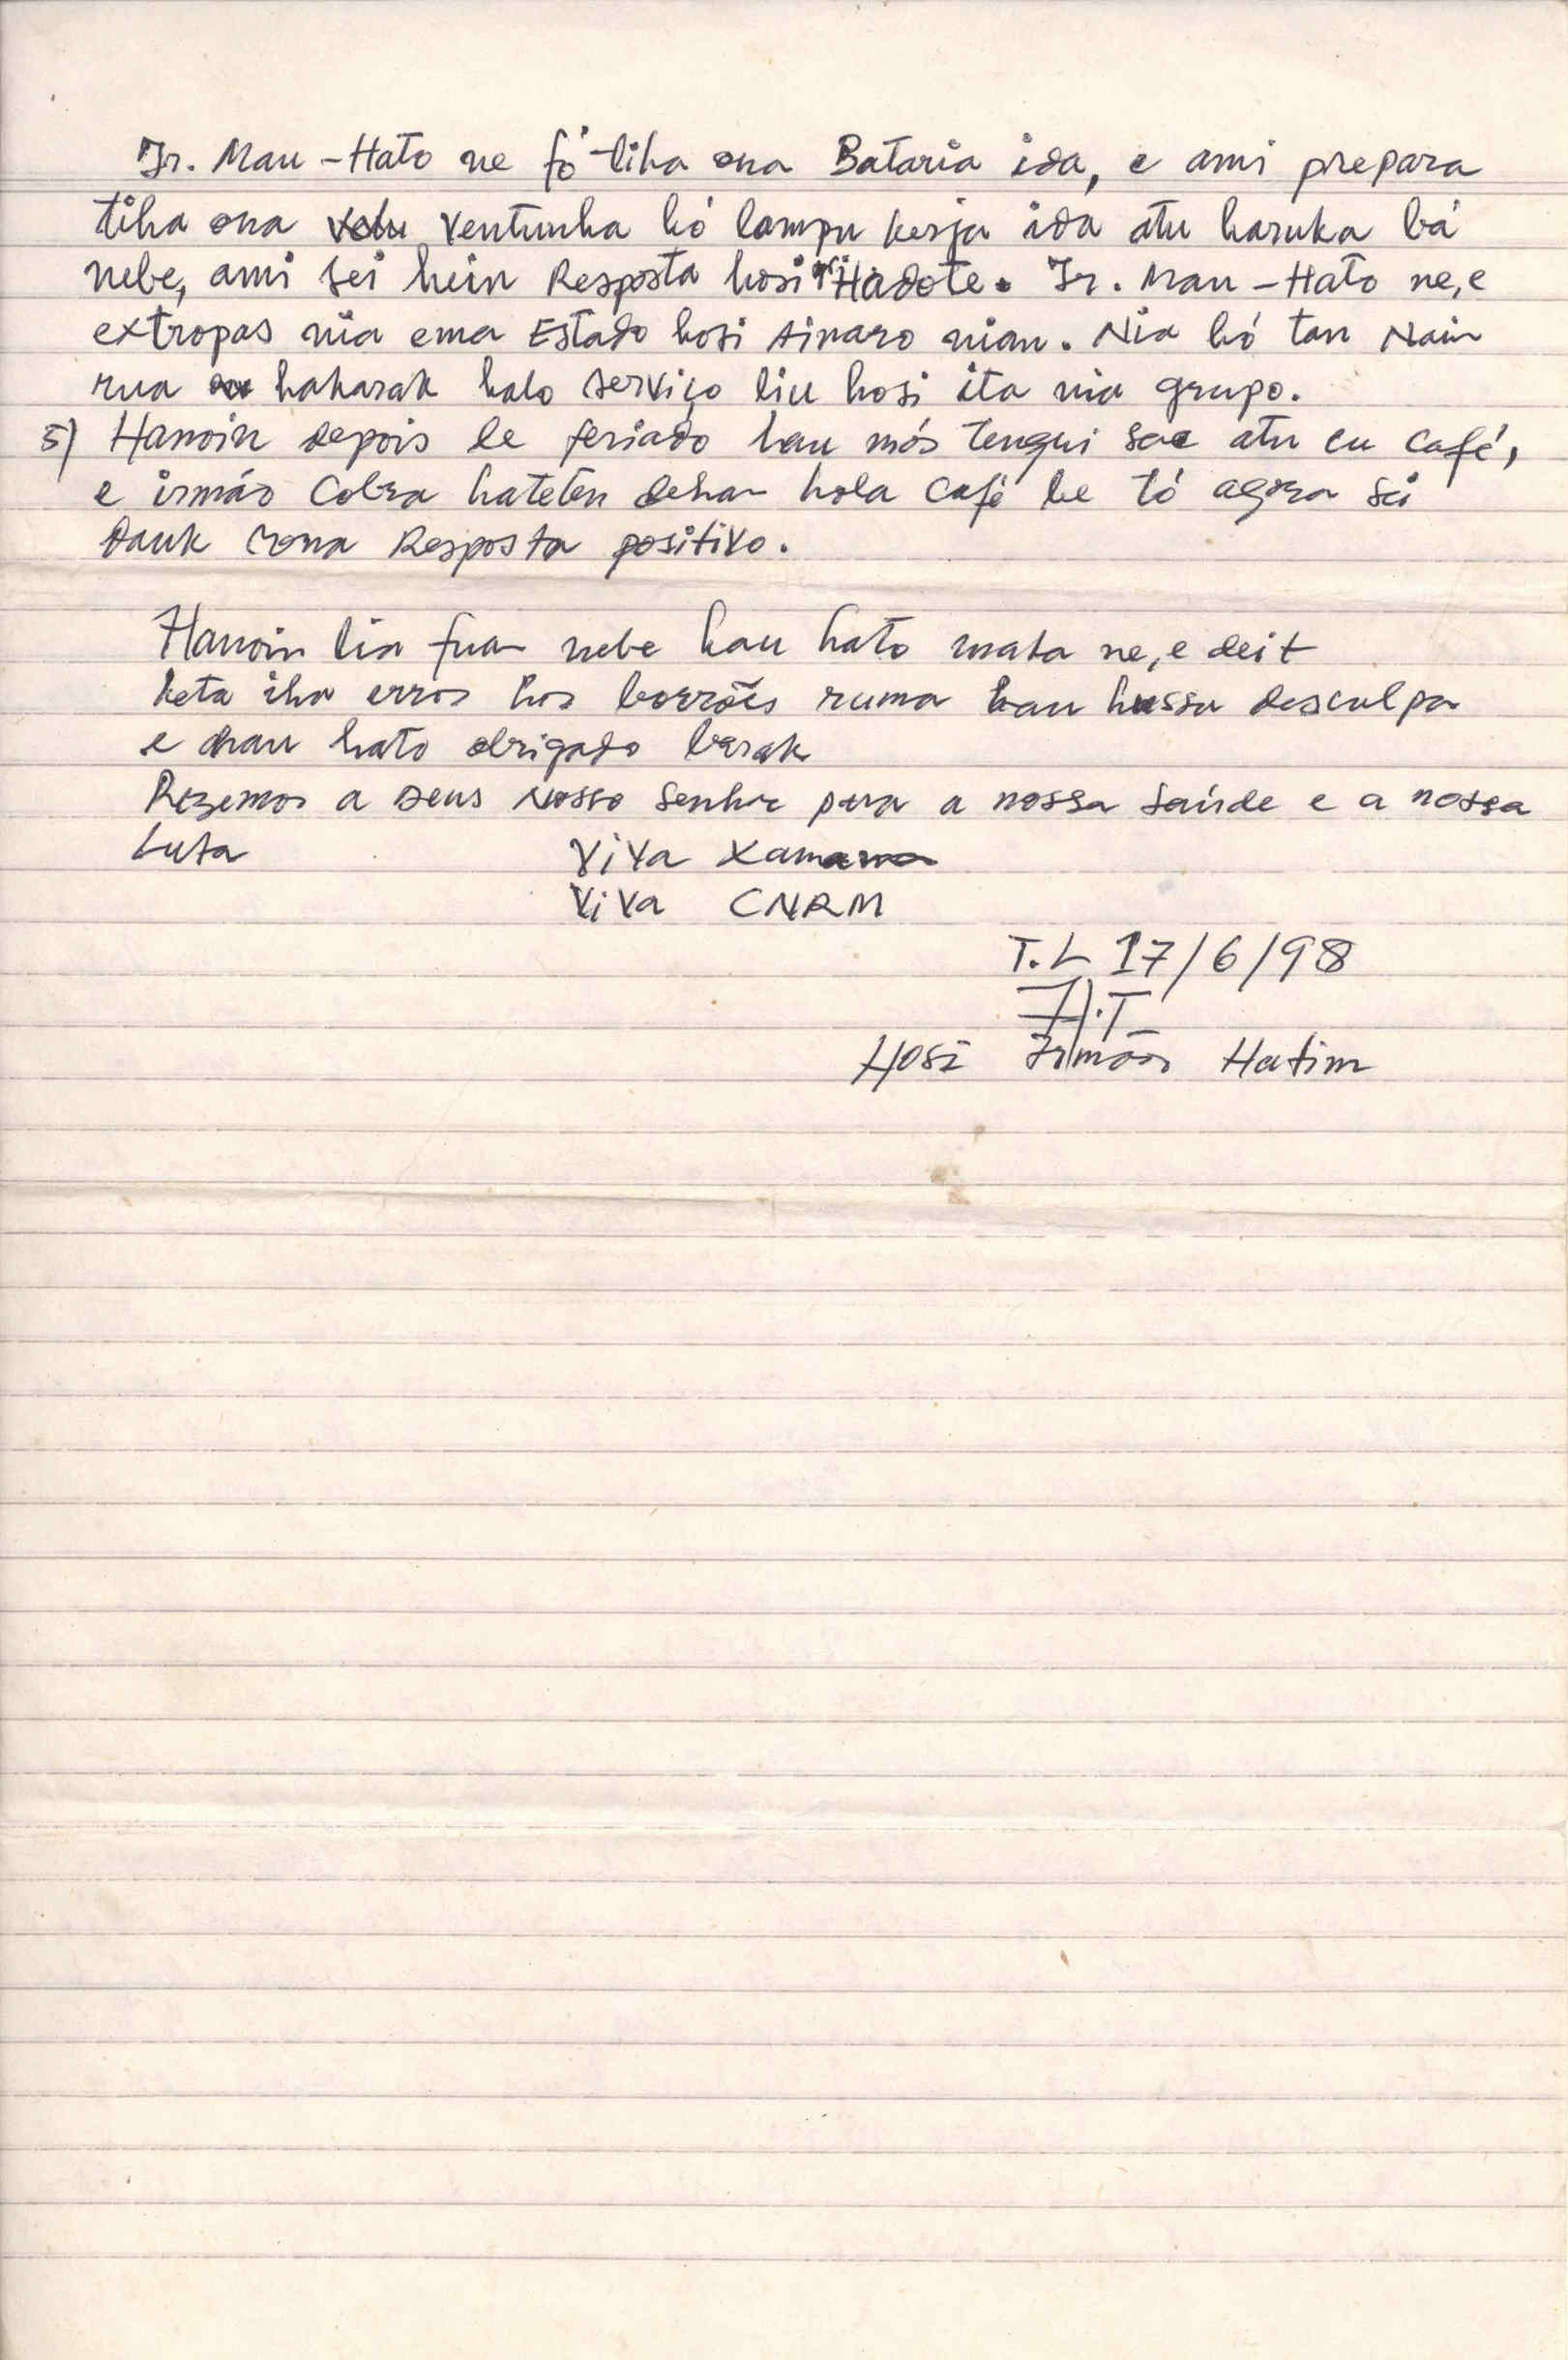 Ir. Mau-Hato ne fó tiha ona Bataria ida, e ami prepara
tiha ona Ventunha hó lampu kerja ida atu haruka bá
nebe, ami sei hein Resposta hosi Hadote. Ir. Mau-Hato ne,e
extropas nia ema Estado hosi Ainaro nian. Nia hó tan Nain
rua hakarak halo serviço liu hosi ita nia grupo.
5) Hanoin depois de feriado hau mós tengui sae atu cu café,
e irmão Cobra hateten dehan hola café be tó agora sei
dauk rona Resposta positivo.
Hanoin lia fuan nebe hau hato maka ne,e deit
keta iha erros hos borrões ruma hau hussu desculpa
e hau hato obrigado barak
Rezemos a Deus Nosso Senhor para a nossa saúde e a nossa
Luta
Viva Xanana
Viva CNRM
T.L 17/6/98
H.T
Hosi Irmão Hatim